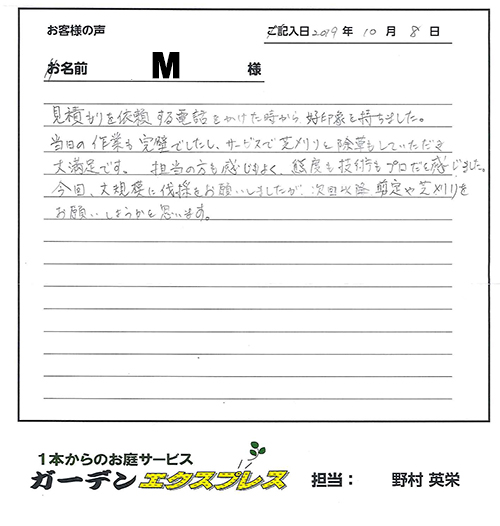 お客様の声
ご記入日 2019 年 10 月 8 日
お名前 M 様
見積もりを依頼する電話をかけた時から、好印象を持ちました。
当日の作業も完璧でしたし、サービスで芝刈りと除草もしていただき
大満足です。 担当の方も感じもよく、態度も技術もプロだと感じました。
今回、大規模に伐採をお願いしましたが、次回以降 剪定や芝刈りを
お願いしようかと思います。
1本からのお庭サービス
ガーデンエクスプレス 担当： 野村 英栄